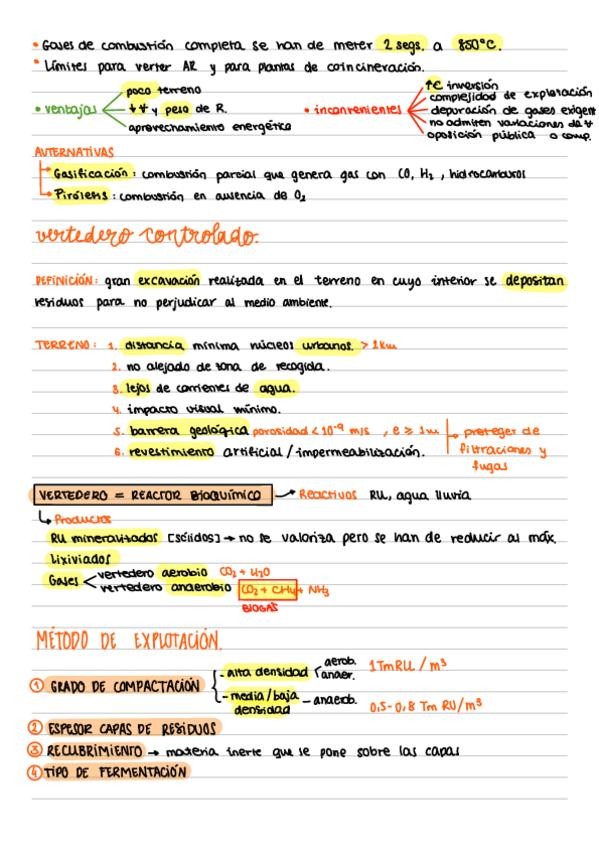 • Gases de combustión completa se han de meter 2 segs. a 850°C.
• Límites para verter AR y para plantas de coincineración.
• ventajas
poco terreno
↓ V y peso de R.
aprovechamiento energético
• inconvenientes
↑€ inversión
complejidad de explotación
depuración de gases exigent
no admiten variaciones de V
oposición pública o comp.
ALTERNATIVAS
Gasificación: combustión parcial que genera gas con CO, H₂, hidrocarburos
Pirólisis: combustión en ausencia de O₂
vertedero controlado.
DEFINICIÓN: gran excavación realizada en el terreno en cuyo interior se depositan
residuos para no perjudicar al medio ambiente.
TERRENO: 1. distancia mínima núcleos urbanos. > 1km
2. no alejado de zona de recogida.
3. lejos de corrientes de agua.
4. impacto visual mínimo.
5. barrera geológica porosidad < 10⁻⁹ m/s, e ≥ 1m
6. revestimiento artificial / impermeabilización.
→ proteger de
filtraciones y
fugas
VERTEDERO = REACTOR BIOQUÍMICO → Reactivos RU, agua lluvia
↳ Productos
RU mineralizados [sólidos] → no se valoriza pero se han de reducir al máx.
Lixiviados
Gases
vertedero aerobio CO₂ + H₂O
vertedero anaerobio CO₂ + CH₄ + NH₃
BIOGAS
MÉTODO DE EXPLOTACIÓN.
① GRADO DE COMPACTACIÓN
- alta densidad
aerob.
anaer.
1 Tm RU / m³
- media/baja
densidad
- anaerob.
0,5-0,8 Tm RU/m³
② ESPESOR CAPAS DE RESIDUOS
③ RECUBRIMIENTO → materia inerte que se pone sobre las capas
④ TIPO DE FERMENTACIÓN